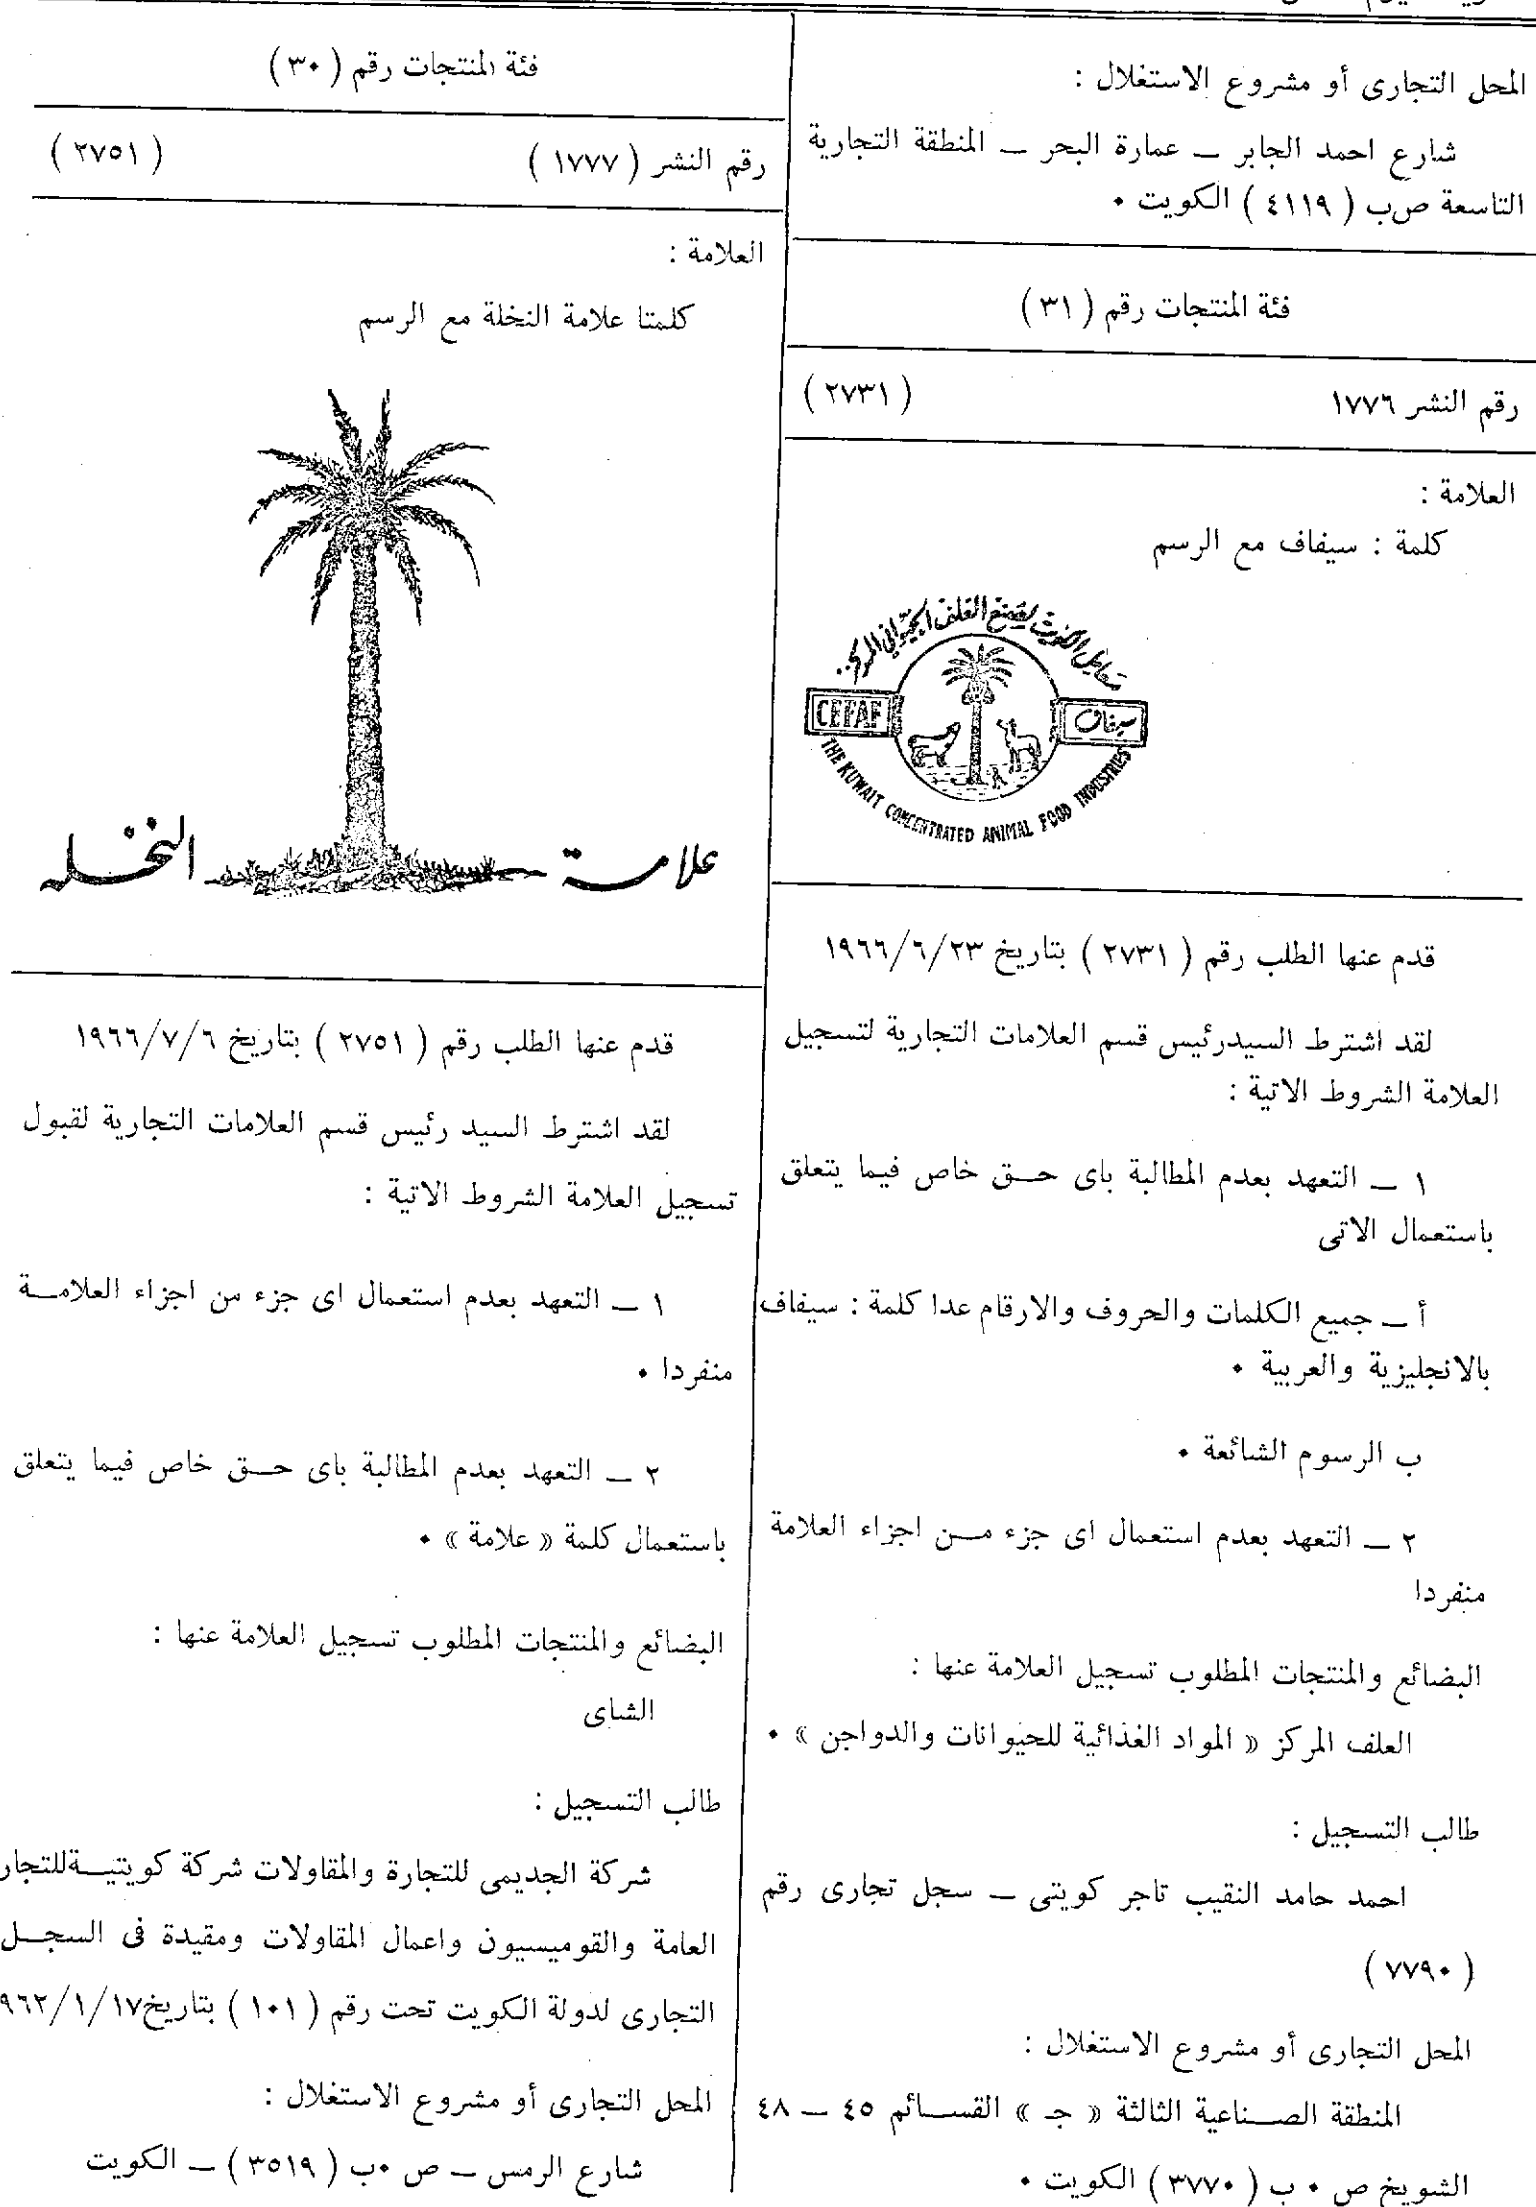 المحل التجارى أو مشروع الاستغلال :
شارع احمد الجابر — عمارة البحر — المنطقة التجارية
التاسعة ص٠ب ( ٤١١٩ ) الكويت ٠
فئة المنتجات رقم ( ٣١ )
رقم النشر ١٧٧٦ ( ٢٧٣١ )
العلامة :
كلمة : سيفاف مع الرسم
معامل الكويت لصنع العلف الحيواني المركز
CEFAF
سيفاف
THE KUWAIT CONCENTRATED ANIMAL FOOD INDUSTRIES
قدم عنها الطلب رقم ( ٢٧٣١ ) بتاريخ ١٩٦٦/٦/٢٣
لقد اشترط السيدرئيس قسم العلامات التجارية لتسجيل
العلامة الشروط الاتية :
١ — التعهد بعدم المطالبة باى حــق خاص فيما يتعلق
باستعمال الاتى
أ — جميع الكلمات والحروف والارقام عدا كلمة : سيفاف
بالانجليزية والعربية ٠
ب الرسوم الشائعة ٠
٢ — التعهد بعدم استعمال اى جزء مــن اجزاء العلامة
منفردا
البضائع والمنتجات المطلوب تسجيل العلامة عنها :
العلف المركز « المواد الغذائية للحيوانات والدواجن » ٠
طالب التسجيل :
احمد حامد النقيب تاجر كويتى — سجل تجارى رقم
( ٧٧٩٠ )
المحل التجارى أو مشروع الاستغلال :
المنطقة الصــناعية الثالثة « جـ » القســائم ٤٥ — ٤٨
الشويخ ص ٠ ب ( ٣٧٧٠ ) الكويت ٠
فئة المنتجات رقم ( ٣٠ )
رقم النشر ( ١٧٧٧ ) ( ٢٧٥١ )
العلامة :
كلمتا علامة النخلة مع الرسم
علامة النخله
قدم عنها الطلب رقم ( ٢٧٥١ ) بتاريخ ١٩٦٦/٧/٦
لقد اشترط السيد رئيس قسم العلامات التجارية لقبول
تسجيل العلامة الشروط الاتية :
١ — التعهد بعدم استعمال اى جزء من اجزاء العلامــة
منفردا ٠
٢ — التعهد بعدم المطالبة باى حــق خاص فيما يتعلق
باستعمال كلمة « علامة » ٠
البضائع والمنتجات المطلوب تسجيل العلامة عنها :
الشاى
طالب التسجيل :
شركة الجديمى للتجارة والمقاولات شركة كويتيــةللتجار
العامة والقوميسيون واعمال المقاولات ومقيدة فى السجــل
التجارى لدولة الكويت تحت رقم ( ١٠١ ) بتاريخ٩٦٢/١/١٧
المحل التجارى أو مشروع الاستغلال :
شارع الرمس — ص ٠ب ( ٣٥١٩ ) — الكويت